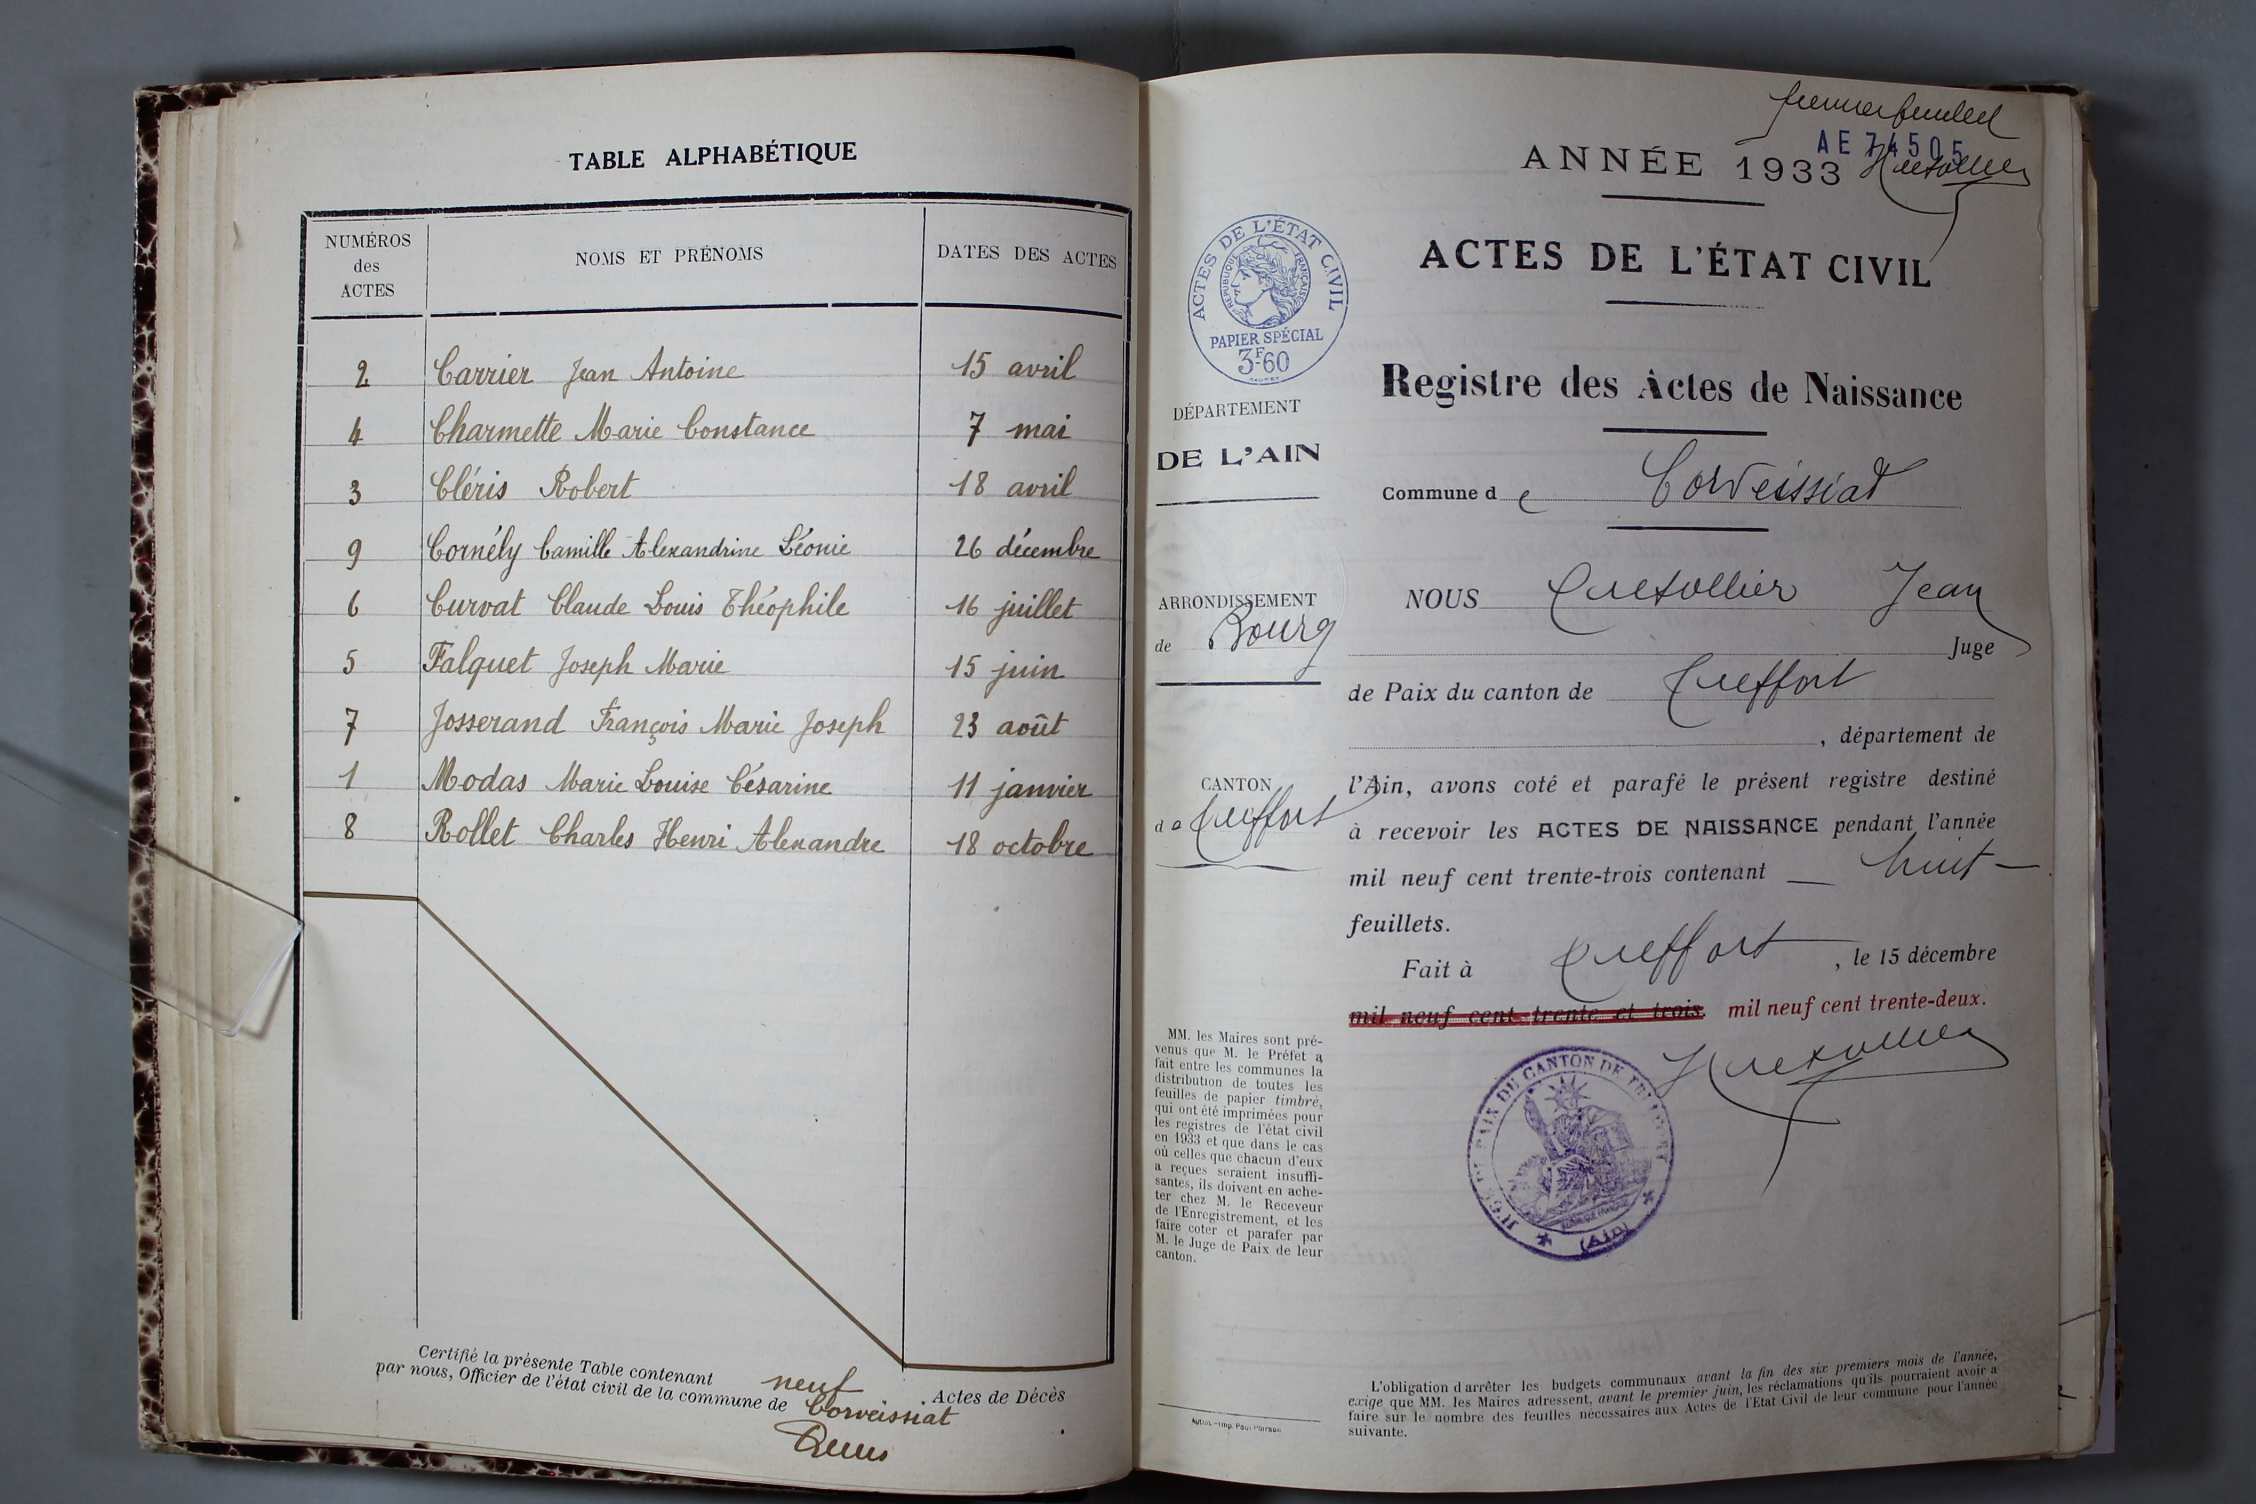 TABLE ALPHABÉTIQUE
NUMÉROS
des
ACTES
NOMS ET PRÉNOMS
DATES DES ACTES
2 Carrier Jean Antoine 15 avril
4 Charmette Marie Constance 7 mai
3 Cléris Robert 18 avril
9 Cornély Camille Alexandrine Léonie 26 décembre
6 Curvat Claude Louis Théophile 16 juillet
5 Falquet Joseph Marie 15 juin
7 Josserand François Marie Joseph 23 août
1 Modas Marie Louise Césarine 11 janvier
8 Rollet Charles Henri Alexandre 18 octobre
Certifié la présente Table contenant neuf Actes de Décès
par nous, Officier de l'état civil de la commune de Corveissiat
premier feuillet
AE 74505
ANNÉE 1933
ACTES DE L'ÉTAT CIVIL
Registre des Actes de Naissance
Commune de Corveissiat
ACTES DE L'ÉTAT CIVIL
RÉPUBLIQUE FRANÇAISE
PAPIER SPÉCIAL
3F.60
DÉPARTEMENT
DE L'AIN
ARRONDISSEMENT
de Bourg
CANTON
de Treffort
MM. les Maires sont pré-
venus que M. le Préfet a
fait entre les communes la
distribution de toutes les
feuilles de papier timbré,
qui ont été imprimées pour
les registres de l'état civil
en 1933 et que dans le cas
où celles que chacun d'eux
a reçues seraient insuffi-
santes, ils doivent en ache-
ter chez M. le Receveur
de l'Enregistrement, et les
faire coter et parafer par
M. le Juge de Paix de leur
canton.
NOUS Jean
Juge
de Paix du canton de Treffort
, département de
l'Ain, avons coté et parafé le présent registre destiné
à recevoir les ACTES DE NAISSANCE pendant l'année
mil neuf cent trente-trois contenant — huit —
feuillets.
Fait à Treffort , le 15 décembre
mil neuf cent trente et trois mil neuf cent trente-deux.
PAIX DU CANTON DE TREFFORT
(Ain)
L'obligation d'arrêter les budgets communaux avant la fin des six premiers mois de l'année,
exige que MM. les Maires adressent, avant le premier juin, les réclamations qu'ils pourraient avoir à
faire sur le nombre des feuilles nécessaires aux Actes de l'Etat Civil de leur commune pour l'année
suivante.